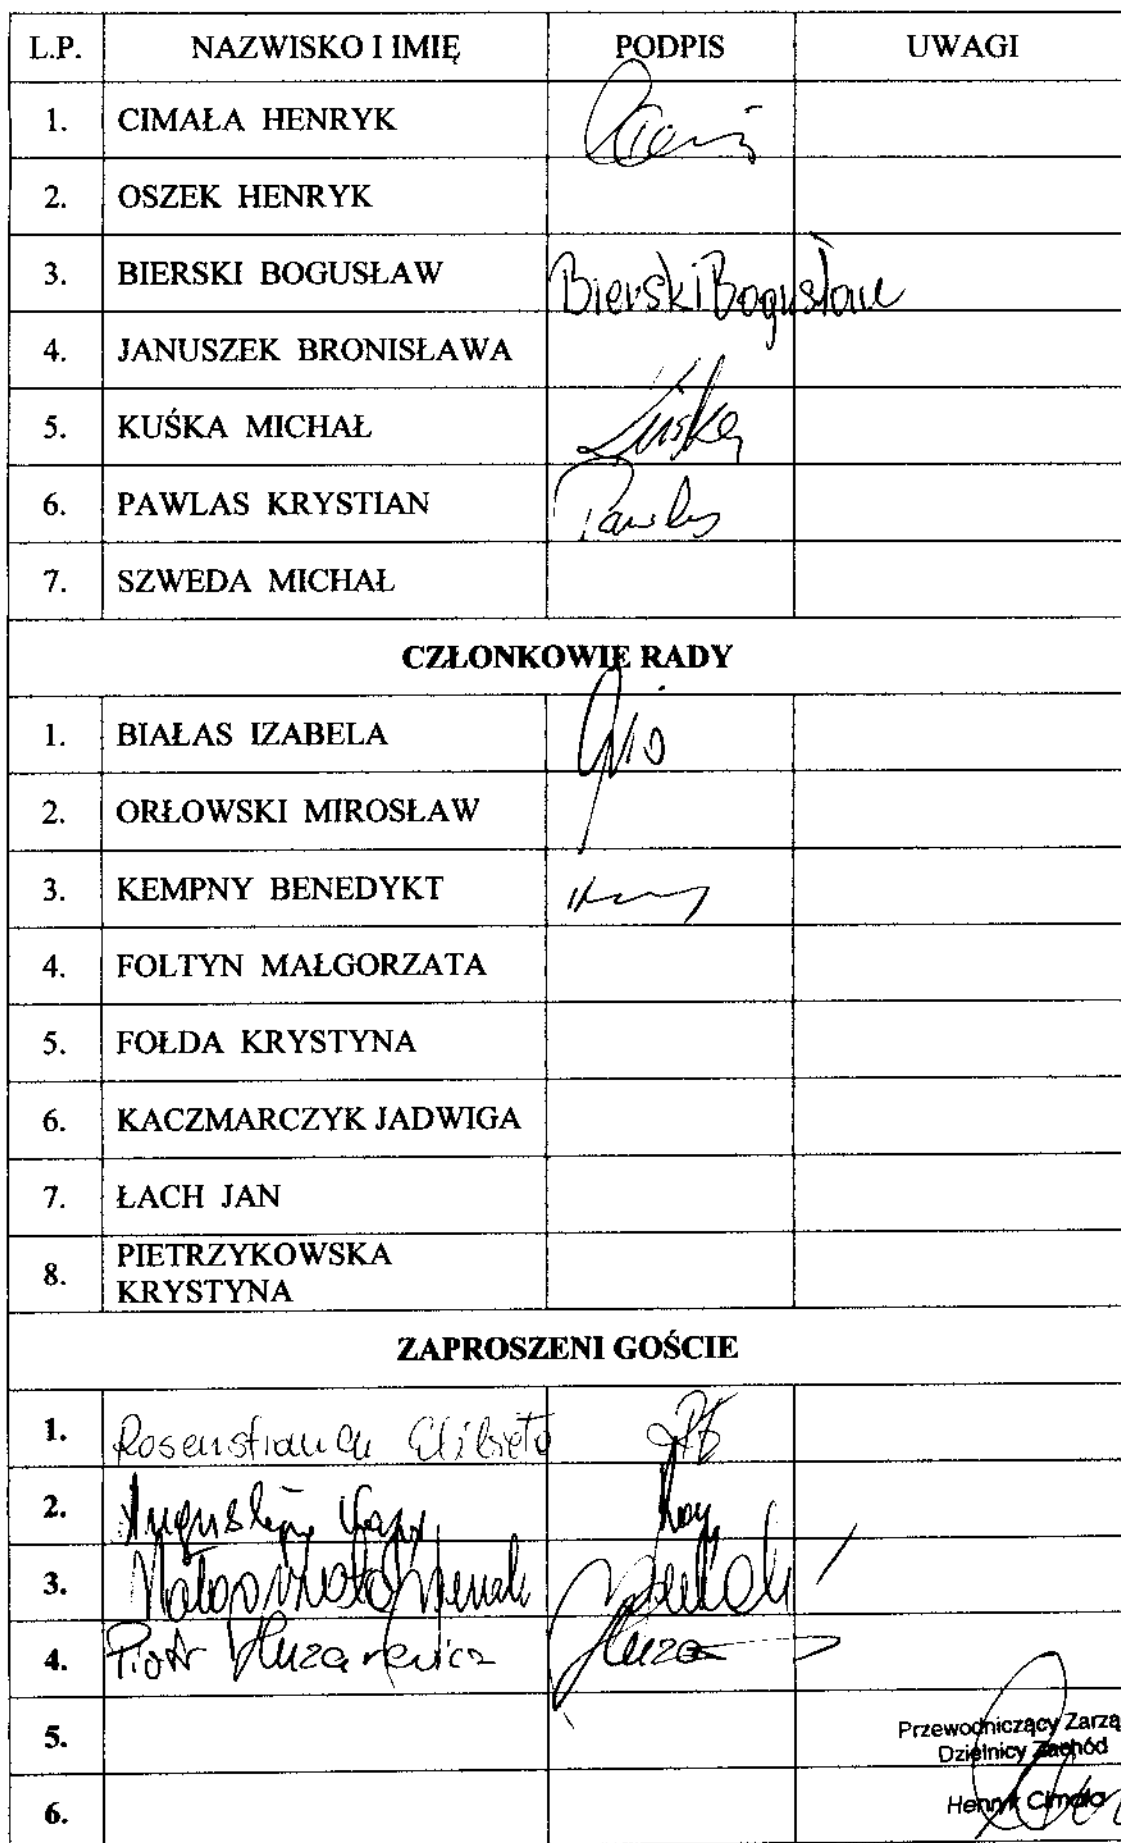 L.P. NAZWISKO I IMIĘ PODPIS UWAGI
1. CIMAŁA HENRYK
2. OSZEK HENRYK
3. BIERSKI BOGUSŁAW Bierski Bogusław
4. JANUSZEK BRONISŁAWA
5. KUŚKA MICHAŁ Kuśka
6. PAWLAS KRYSTIAN Pawlas
7. SZWEDA MICHAŁ
CZŁONKOWIE RADY
1. BIAŁAS IZABELA
2. ORŁOWSKI MIROSŁAW
3. KEMPNY BENEDYKT
4. FOLTYN MAŁGORZATA
5. FOŁDA KRYSTYNA
6. KACZMARCZYK JADWIGA
7. ŁACH JAN
8. PIETRZYKOWSKA
KRYSTYNA
ZAPROSZENI GOŚCIE
1. Elżbieta
2.
3.
4. Piotr
5.
Przewodniczący Zarzą
Dzielnicy Zachód
6. Henryk Cimała